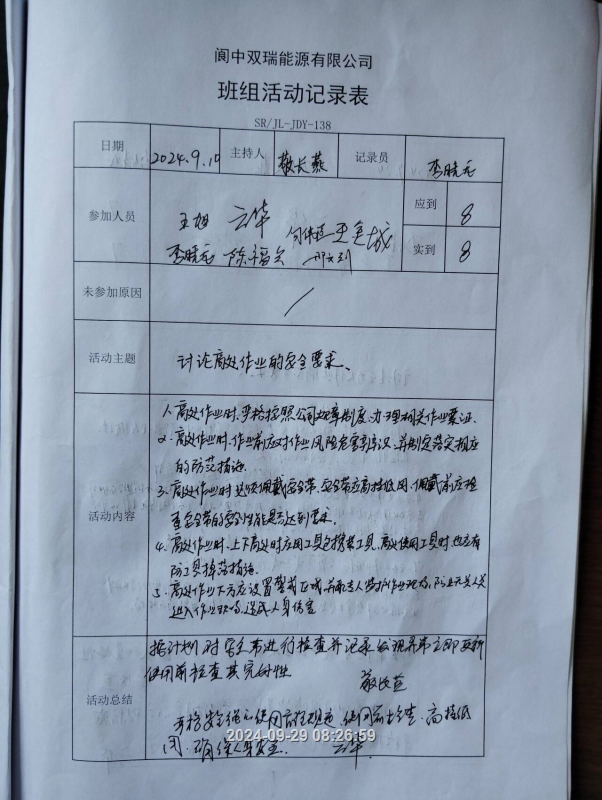 阆中双瑞能源有限公司
班组活动记录表
SR/JL-JDY-138
日期 2024.9.10 主持人 敬长燕 记录员 李晓元
参加人员 王旭 云华
李晓元 陈福云
应到 8
实到 8
未参加原因 /
活动主题 讨论高处作业的安全要求、
活动内容
1、高处作业时,严格按照公司规章制度,办理相关作业票证.
2、高处作业时,作业前应对作业风险危害辨识,并制定落实相应
的防范措施.
3、高处作业时必须佩戴安全带、安全带应高挂低用,佩戴前应检
查安全带的安全性能是否达到要求.
4、高处作业时,上下高处时应用工具包携带工具、高处使用工具时,也应有
防工具掉落措施.
5、高处作业下方应设置警戒区域,并配专人监护作业现场,防止无关人员
进入作业现场,造成人身伤害
活动总结
按计划对安全带进行检查并记录发现异常立即更新
使用前检查其完好性
敬长燕
高挂低
用、确保人身安全. 云华
2024-09-29 08:26:59